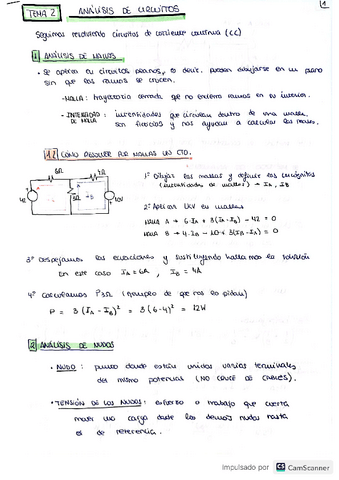 1
TEMA 2 ANÁLISIS DE CIRCUITOS
Seguimos resolviendo circuitos de corriente continua (CC)
1 ANÁLISIS DE MALLAS
• Se aplica en circuitos planos, es decir, pueden dibujarse en un plano
sin que las ramas se crucen.
- MALLA: trayectoria cerrada que no encierra ramas en su interior.
- INTENSIDAD DE MALLA: intensidades que circulan dentro de una malla,
son ficticias y nos ayudan a calcular las reales.
1.2 CÓMO RESOLVER POR MALLAS UN CTO.
6Ω 4Ω
42 3Ω 10V
1º Dibujar las mallas y definir las incógnitas
(intensidades de mallas) → IA, IB
2º Aplicar LKV en mallas
MALLA A → 6·IA + 3(IA-IB) - 42 = 0
MALLA B → 4·IB - 10 + 3(IB-IA) = 0
3º Despejamos las ecuaciones y sustituyendo hallamos la solución
En este caso IA = 6A, IB = 4A
4º Calculamos P3Ω (ejemplo de que nos lo pidan)
P = 3(IA-IB)² = 3(6-4)² = 12W
2 ANÁLISIS DE NUDOS
• NUDO: punto donde están unidos varios terminales
del mismo potencial (NO CRUCE DE CABLES).
• TENSIÓN DE LOS NUDOS: esfuerzo o trabajo que cuesta
mover una carga desde los demás nudos hasta
el de referencia.
Impulsado por CS CamScanner